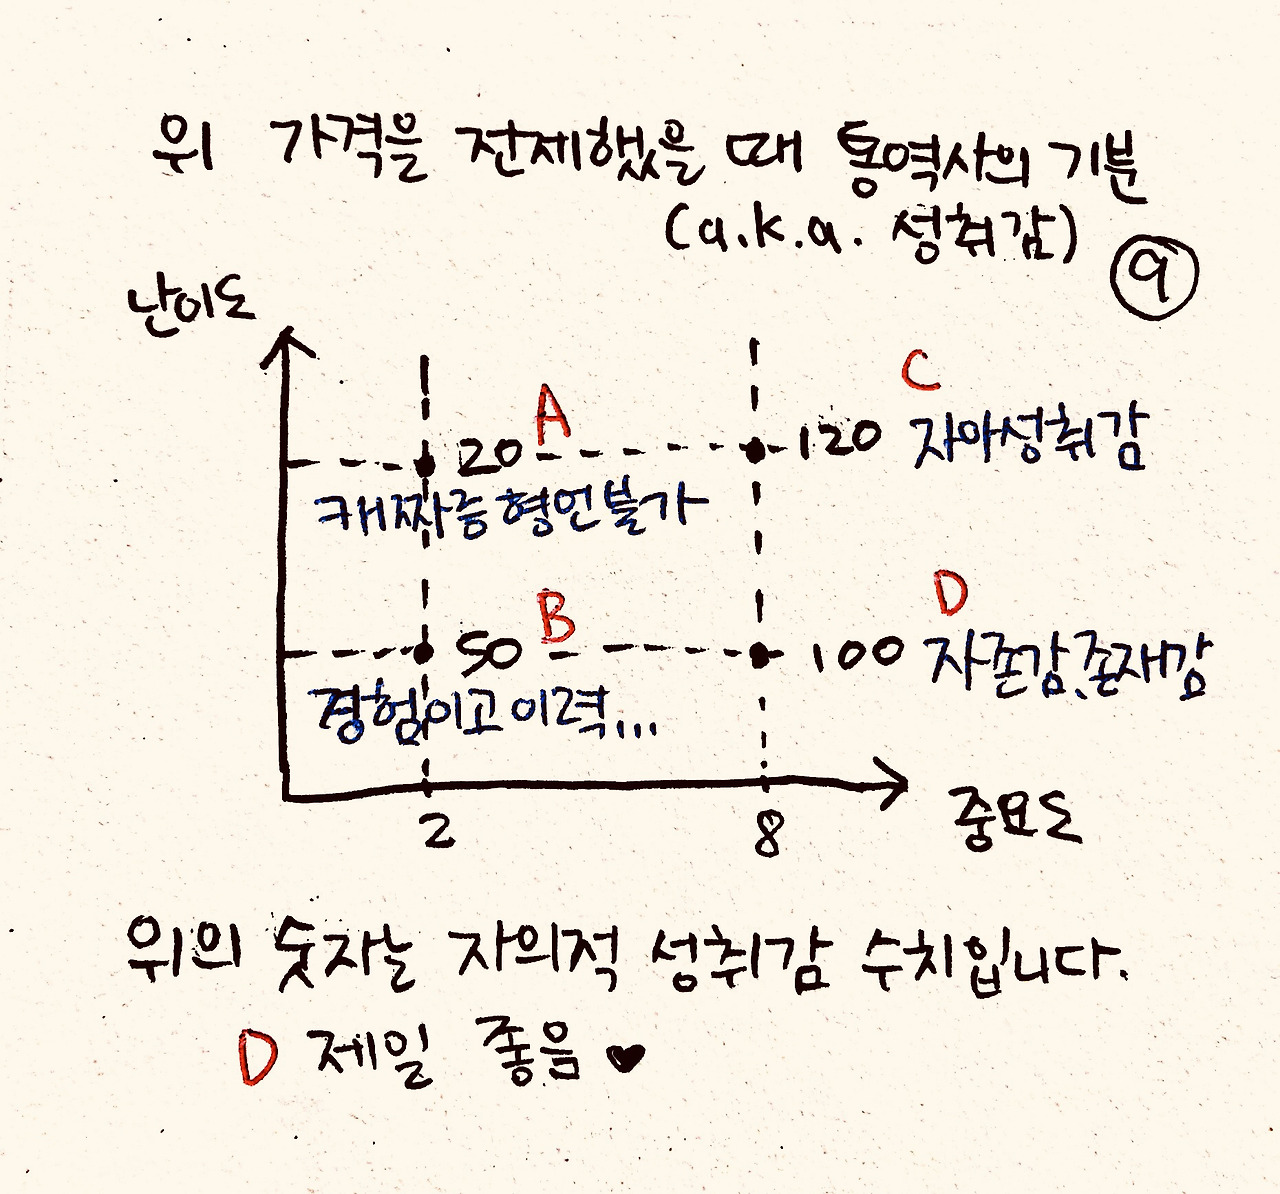 위 가격을 전제했을 때 통역사의 기분
(a.k.a. 성취감)
9
난이도
A
C
20
120 자아성취감
캐짜증 형언불가
B
D
50
100 자존감, 존재감
경험이고 이력...
2
8
중요도
위의 숫자는 자의적 성취감 수치입니다.
D 제일 좋음 ♥